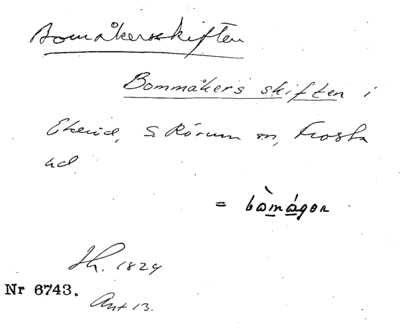 Bomåkersskiften
Bommåkers skiften i
Ekeröd, S Rörum sn, Frosta
hd.
= bòmágər
Sh. 1824
Nr 6743.
Ant 13.